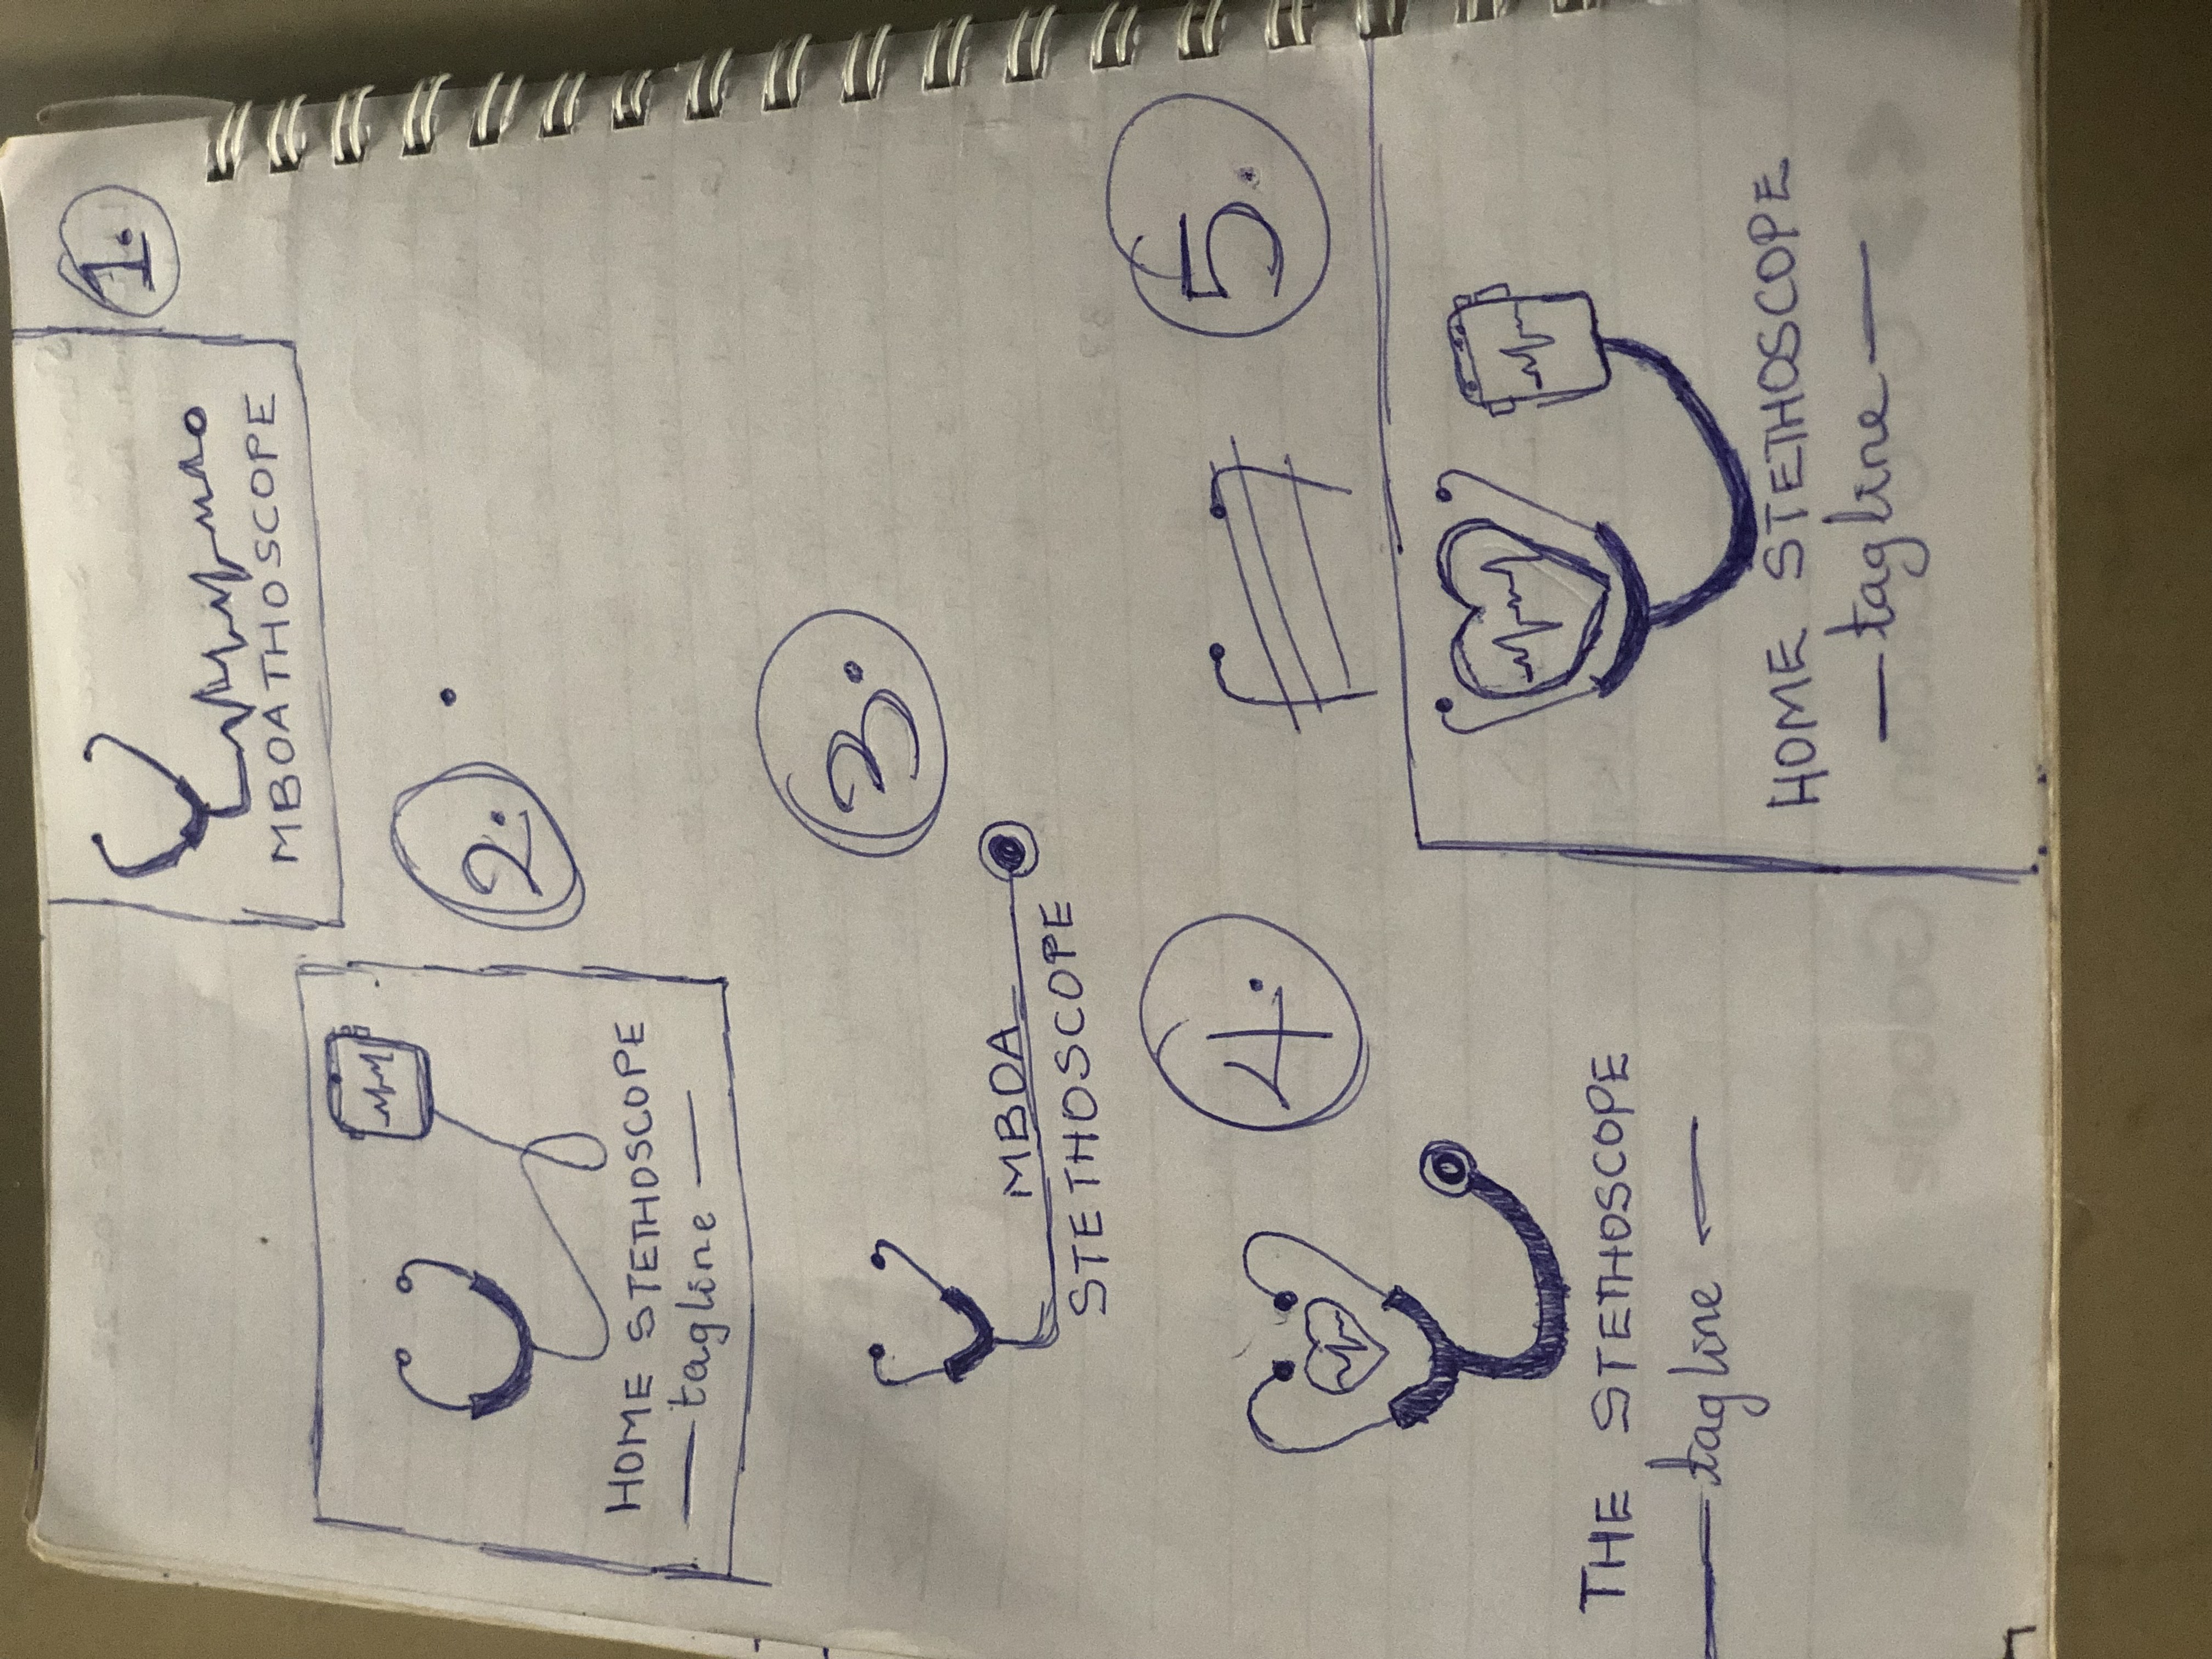 1.
MBOATHOSCOPE
2.
HOME STETHOSCOPE
— tagline —
3.
MBOA
STETHOSCOPE
4.
THE STETHOSCOPE
— tagline —
5.
HOME STETHOSCOPE
— tagline —
Google